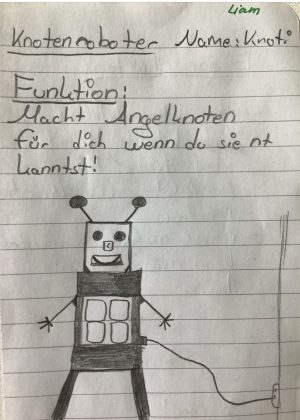 Liam
Knotenroboter Name: Knoti
Funktion:
Macht Angelknoten
für dich wenn du sie nt
kanntst!